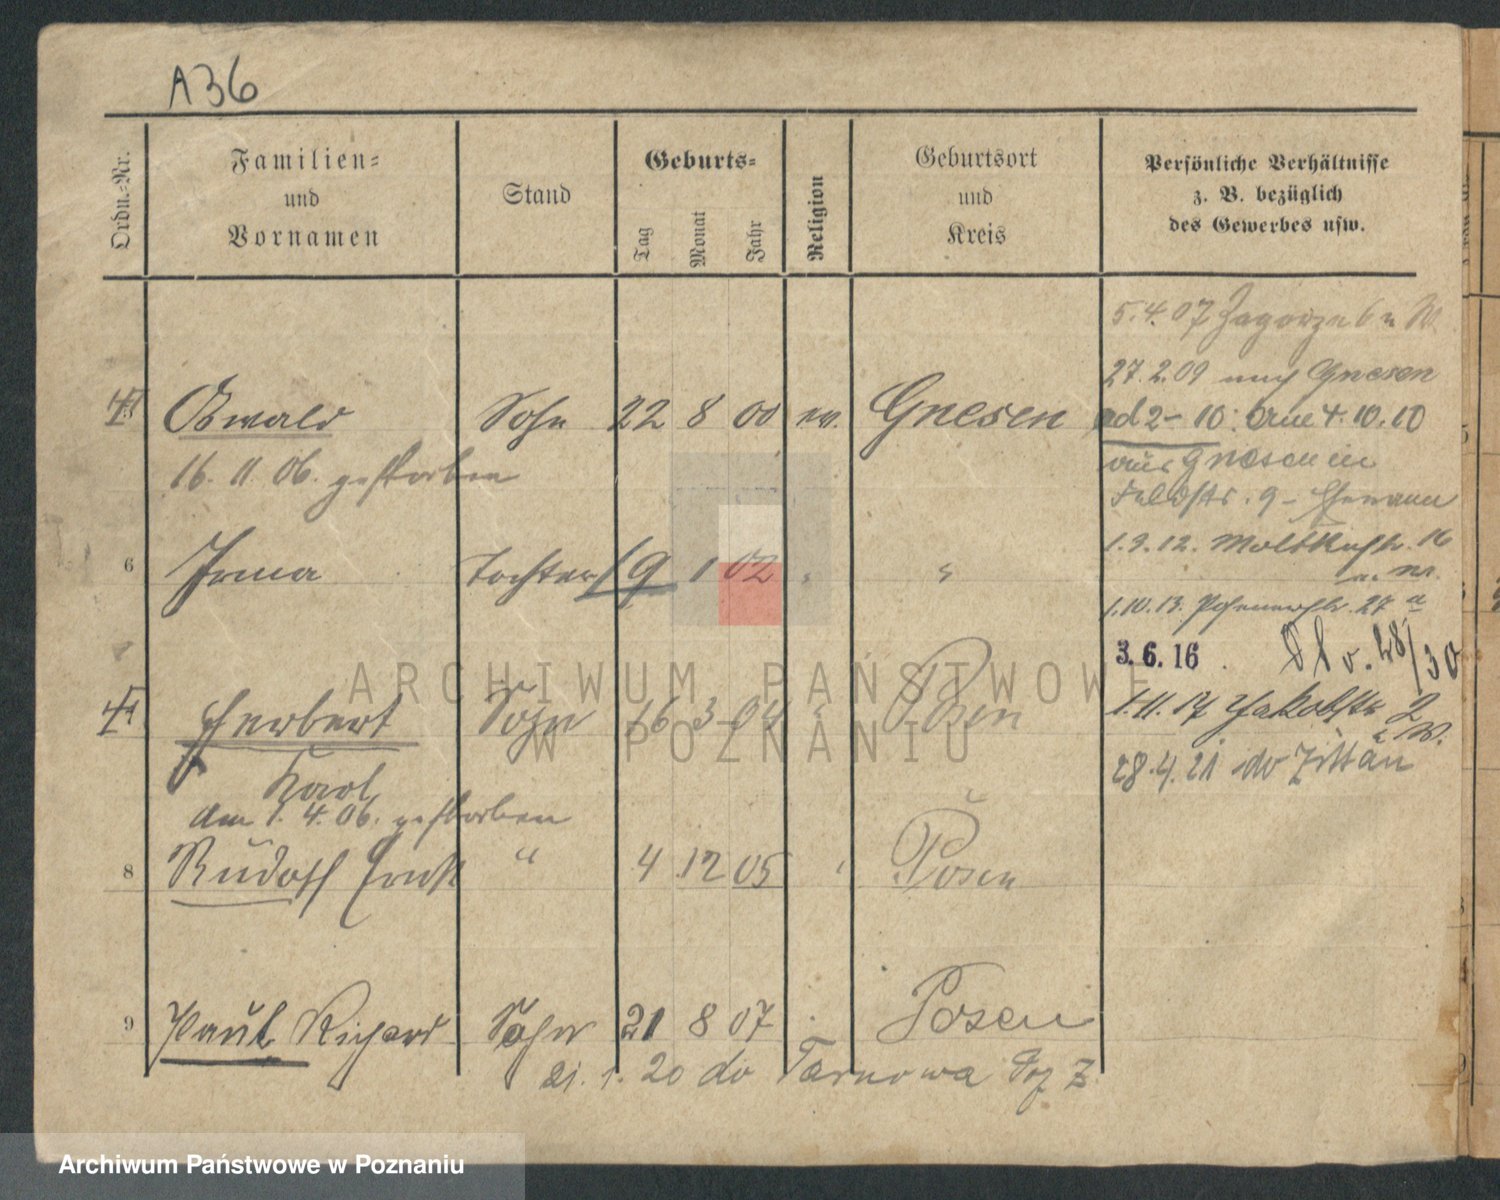 A36
Ordn.-Nr.
Familien-
und
Vornamen
Stand
Geburts-
Tag
Monat
Jahr
Religion
Geburtsort
und
Kreis
Persönliche Verhältnisse
z. B. bezüglich
des Gewerbes usw.
5.4.07
27.2.09 nach Gnesen
Oswald Sohn 22 8 00 ev. Gnesen
ad 2-10: Am 4.10.10
16. 11. 06. gestorben
aus Gnesen in
Feldstr. 9 - Ehemann
1.3.12. Moltkestr. 16
6 Irma Tochter 19 1 02 " "
1.10.13. 27 a
3.6.16
28/30
Herbert Sohn 16 3 04 " Posen
1.11.17 Jakobstr. 2
Karl
28.4.21 do Zittau
am 1. 4. 06. gestorben
8 Rudolf Ernst " 4 12 05 " Posen
9 Paul Richard Sohn 21 8 07 " Posen
21. 1. 20 do Tarnowa
ARCHIWUM PAŃSTWOWE
W POZNANIU
Archiwum Państwowe w Poznaniu